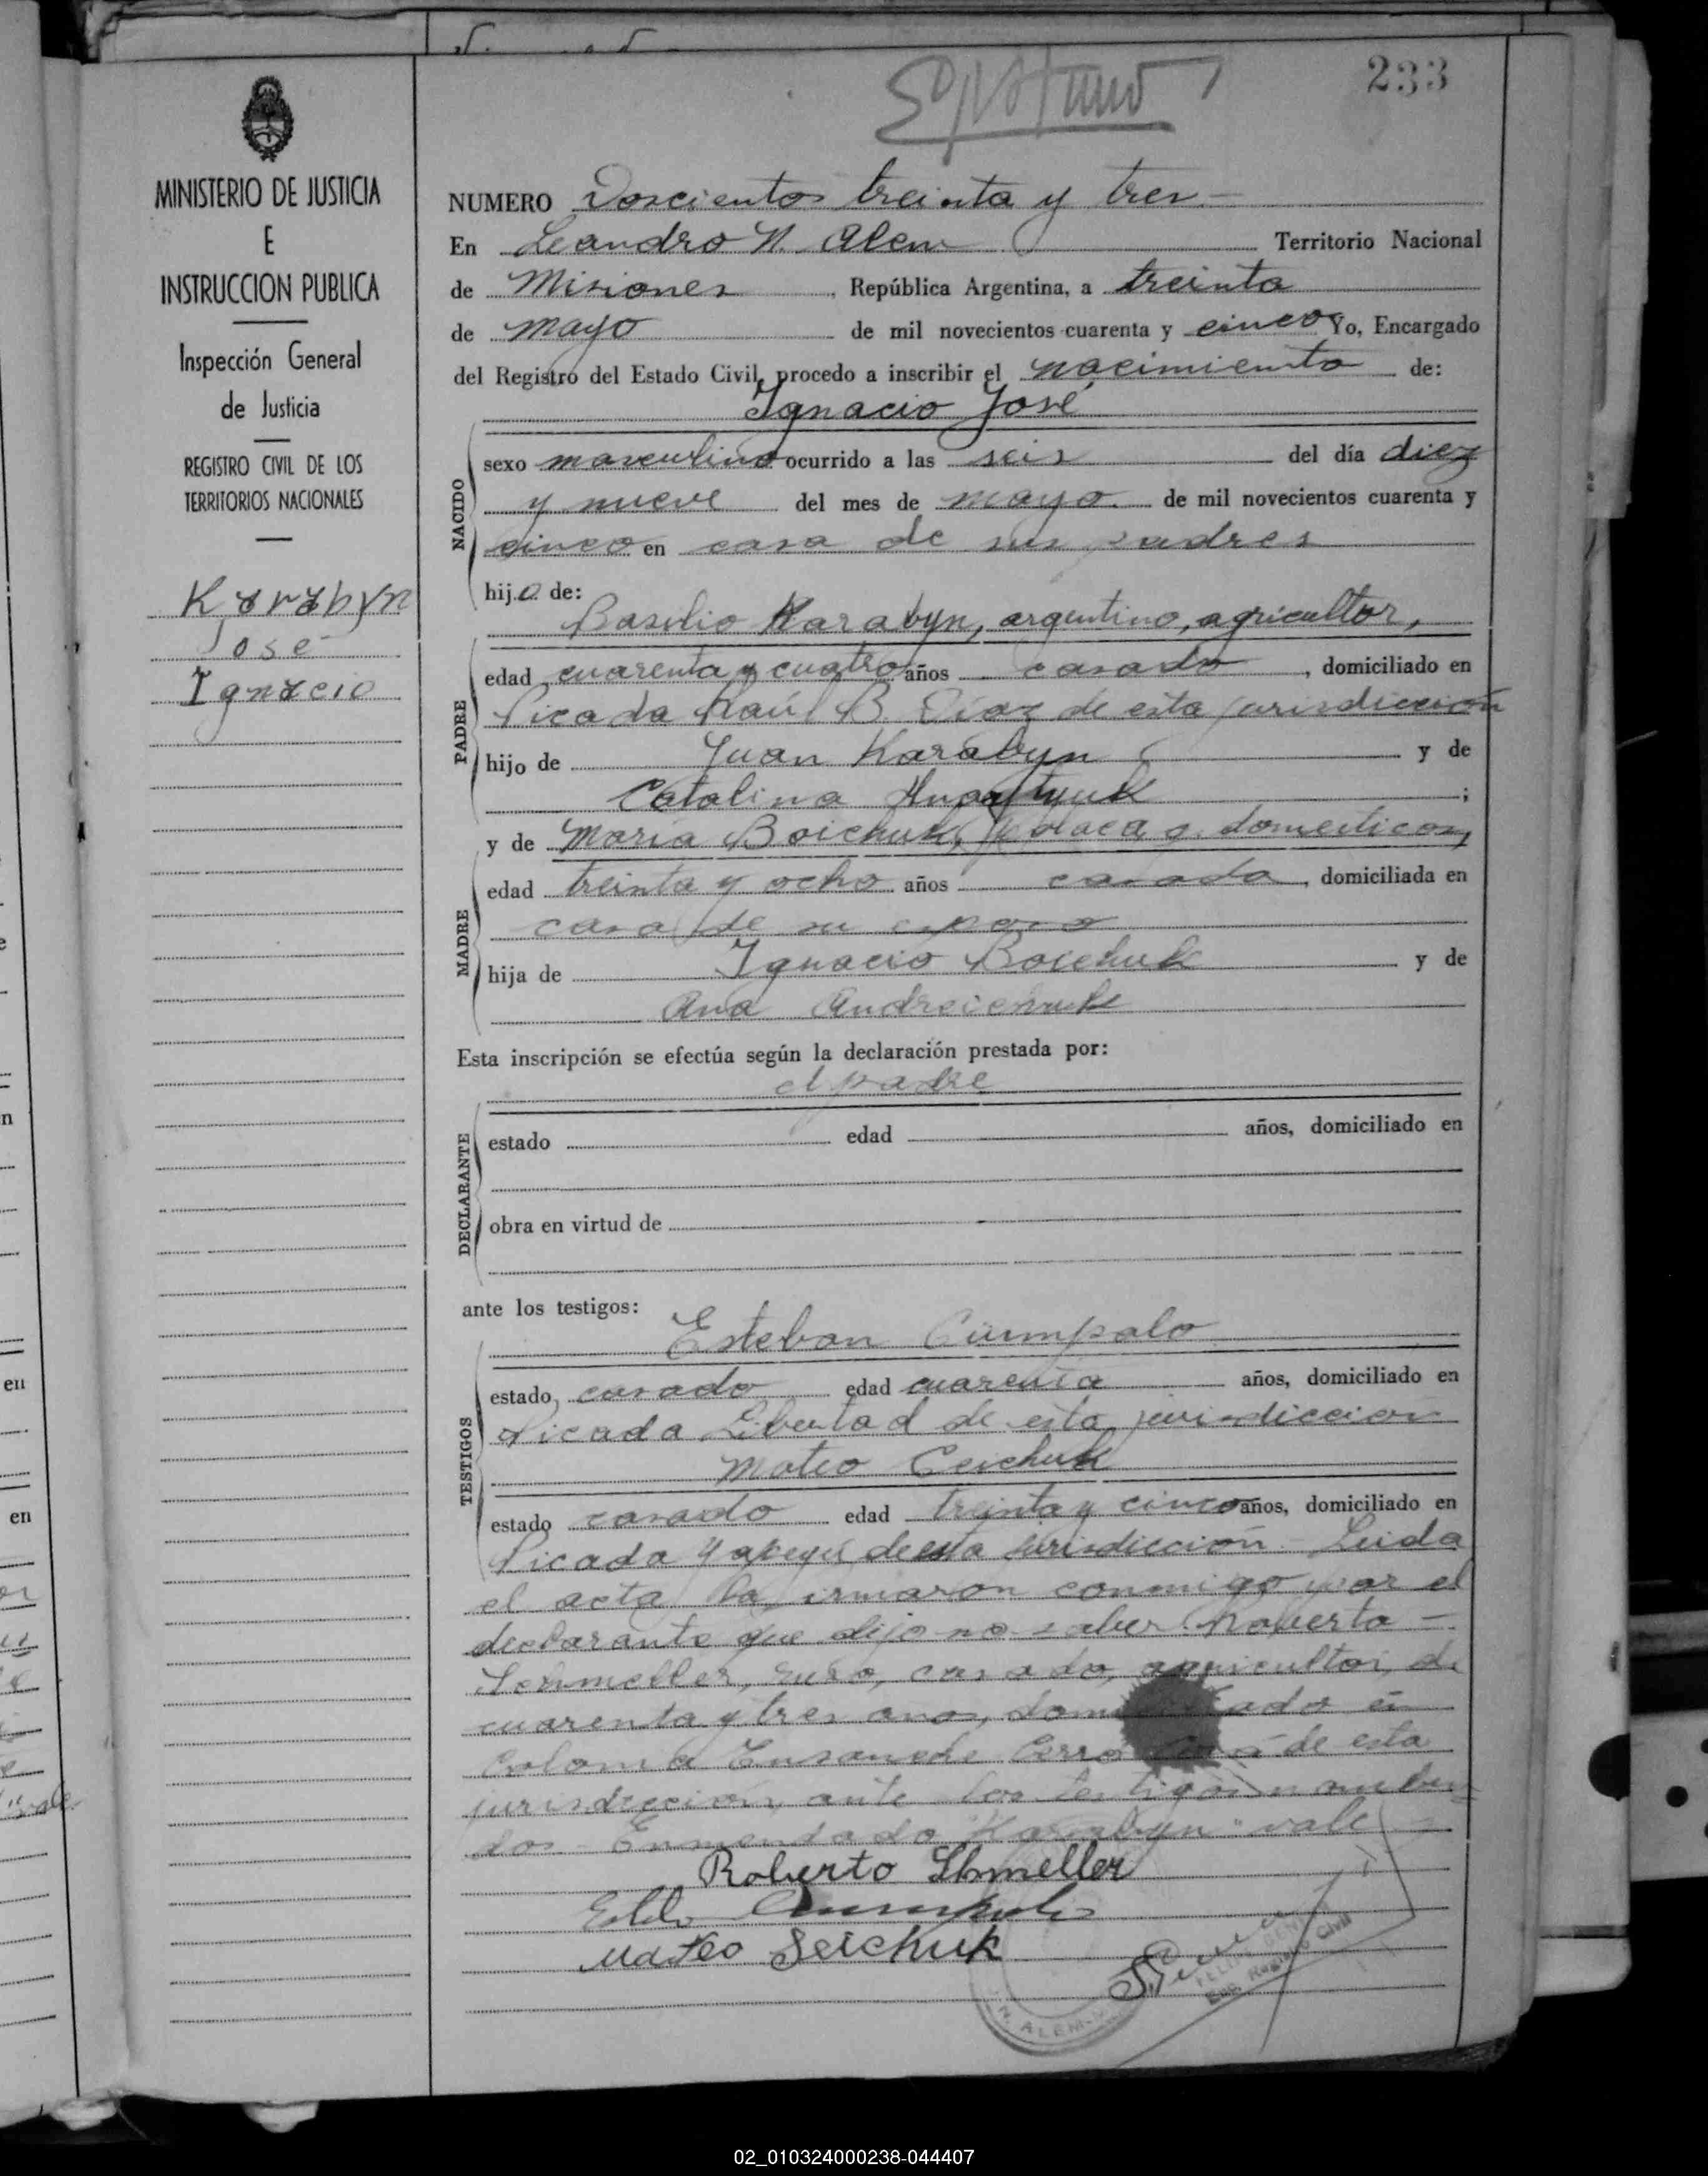 233
MINISTERIO DE JUSTICIA
E
INSTRUCCION PUBLICA
Inspección General
de Justicia
REGISTRO CIVIL DE LOS
TERRITORIOS NACIONALES
Karabyn
José
Ignacio
NUMERO Doscientos treinta y tres.-
En Leandro N. Alem Territorio Nacional
de Misiones, República Argentina, a treinta
de mayo de mil novecientos cuarenta y cinco Yo, Encargado
del Registro del Estado Civil, procedo a inscribir el nacimiento de:
Ignacio José
NACIDO
sexo masculino ocurrido a las seis del día diez
y nueve del mes de mayo de mil novecientos cuarenta y
cinco en casa de sus padres
hijo de:
Basilio Karabyn, argentino, agricultor,
PADRE
edad cuarenta y cuatro años casado, domiciliado en
Picada Raúl B. Díaz de esta jurisdicción
hijo de Juan Karabyn y de
Catalina ;
y de María Boichuk, polaca q. domésticos,
MADRE
edad treinta y ocho años casada, domiciliada en
casa de su esposo
hija de Ignacio Boichuk y de
Ana Andreichuk
Esta inscripción se efectúa según la declaración prestada por:
el padre
DECLARANTE
estado edad años, domiciliado en
obra en virtud de
ante los testigos:
Esteban Cumpalo
TESTIGOS
estado casado edad cuarenta años, domiciliado en
Picada Libertad de esta jurisdicción
Mateo Ceichuk
estado casado edad treinta y cinco años, domiciliado en
Picada Yapeyú de esta jurisdicción. Leida
el acta la firmaron conmigo por el
declarante que dijo no saber Roberto -
Schmeller, ruso, casado, agricultor, de
cuarenta y tres años, domiciliado en
Colonia Ensanche Cerro Corá de esta
jurisdicción, ante los testigos nombra-
dos - Enmendado "Karabyn" vale -
Roberto Shmeller
Mateo Seichuk
N. ALEM
Enc. Registro Civil
02_010324000238-044407